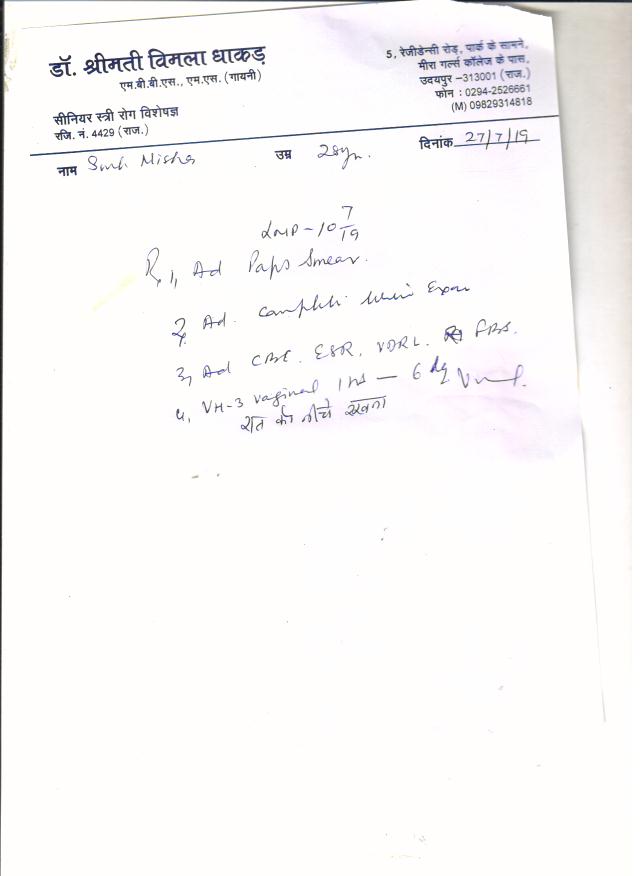 डॉ. श्रीमती विमला धाकड़
एम.बी.बी.एस., एम.एस. (गायनी)
सीनियर स्त्री रोग विशेषज्ञ
रजि. नं. 4429 (राज.)
5, रेजीडेन्सी रोड़, पार्क के सामने,
मीरा गर्ल्स कॉलेज के पास,
उदयपुर –313001 (राज.)
फोन : 0294-2526661
(M) 09829314818
नाम उम्र 28yr. दिनांक 27/7/19
LMP - 10 7/19
Rx 1, Ad Paps Smear.
2, Ad. Complete Urine Exam
3, Ad CBC. ESR. VDRL. FBS.
4, VH-3 vaginal — 6
रात को नीचे रखना